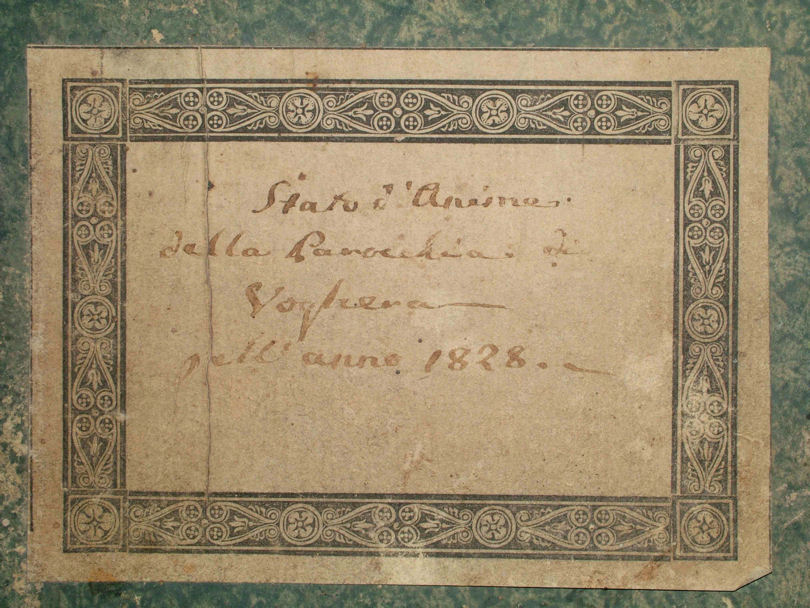 Stato d'Anime.
della Parocchia di
Voghera
pell'anno 1828.